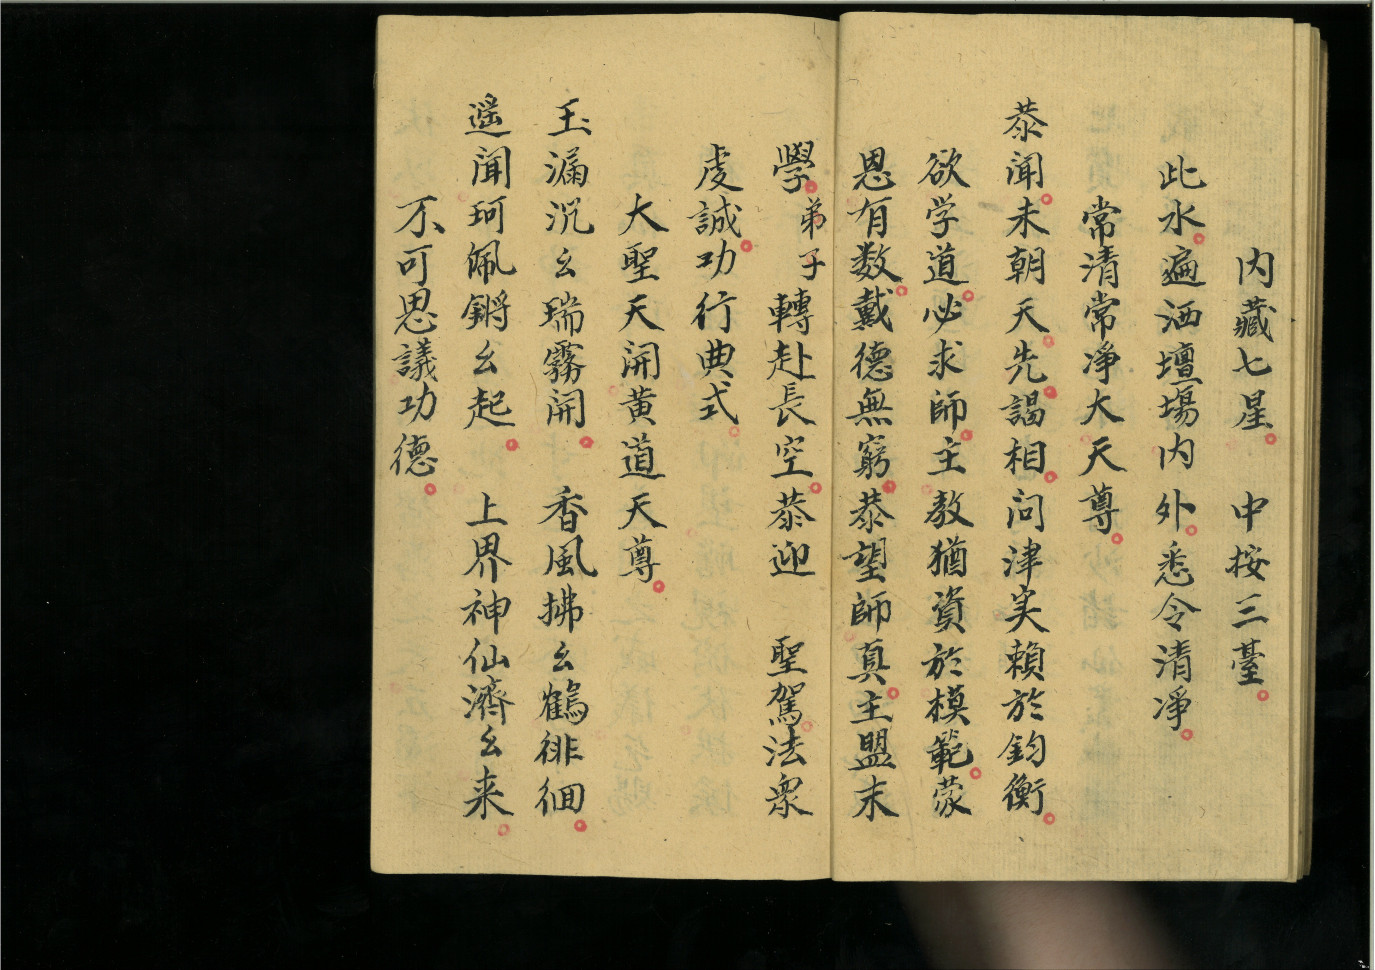 内藏七星　中按三臺
此水遍洒壇場内外悉令清净
常清常净大天尊
恭聞未朝天先謁相问津实賴於鈞衡
欲学道必求師主教猶資於模範蒙
恩有数戴德無窮恭望師真主盟末
學弟子轉赴長空恭迎　聖駕法衆
虔誠功行典式
大聖天開黄道天尊
玉漏沉幺瑞霧開　香風拂幺鶴徘徊
遥聞珂佩鏘幺起　上界神仙濟幺来
不可思議功德